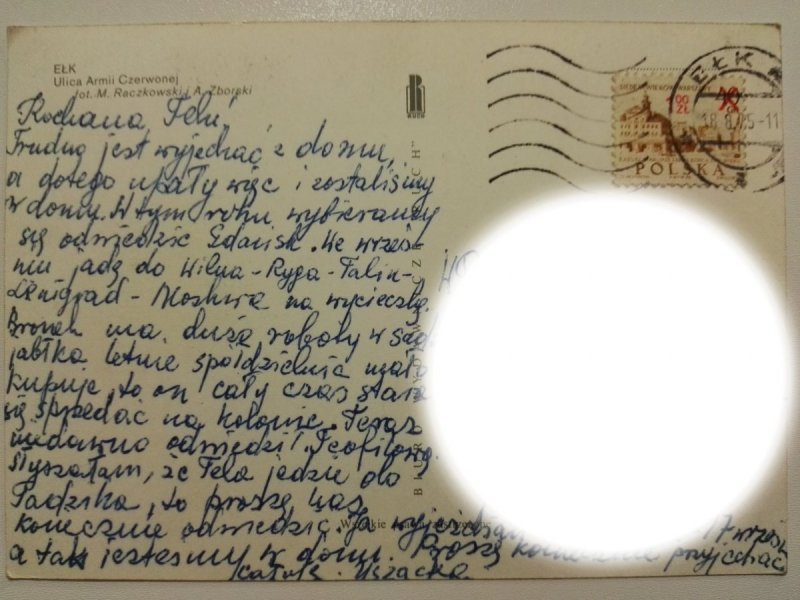 EŁK
Ulica Armii Czerwonej
fot. M. Raczkowski i A. Zborski
RUCH
EŁK
18.8.75-11
1 00 ZŁ
POLSKA
Kochana Felu!
Trudno jest wyjechać z domu,
a dotego upały więc i zostaliśmy
w domu. W tym roku wybieramy
się odwiedzić Gdańsk. We wrześ-
niu jadę do Wilna-Ryga-Talin-
Lenigrad-Moskwa na wycieczkę.
Bronek ma dużo roboty w
jabłka letnie spółdzielnie mało
kupuje, to on cały czas stara
się sprzedać na kolonie. Teraz
niedawno odwiedził
słyszałam, że Fela jedzie do
to proszę nas
koniecznie odwiedzić. Ja wyjeżdżam
17 wrześ
a tak jesteśmy w domu. Proszę koniecznie przyjechać